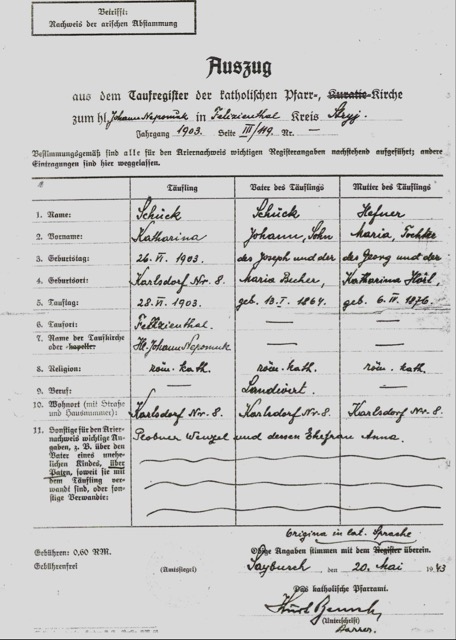 Betrifft:
Nachweis der arischen Abstammung
Auszug
aus dem Taufregister der katholischen Pfarr-, Kuratie-Kirche
zum hl. Johann Nepomuk in Felizienthal Kreis Stryj.
Jahrgang 1903. Seite III/119. Nr. —
Bestimmungsgemäß sind alle für den Ariernachweis wichtigen Registerangaben nachstehend aufgeführt; andere
Eintragungen sind hier weggelassen.
Täufling Vater des Täuflings Mutter des Täuflings
1. Name: Schück Schück Hefner
2. Vorname: Katharina Johann, Sohn Maria, Tochter
3. Geburtstag: 26. VI. 1903. des Joseph und der des Georg und der
4. Geburtsort: Karlsdorf Nr. 8. Maria Becher, Katharina Hörl,
5. Tauftag: 28. VI. 1903. geb. 13. I. 1864. geb. 6. IV. 1876.
6. Taufort: Felizienthal. — —
7. Name der Taufkirche
oder -kapelle: Hl. Johann Nepomuk — —
8. Religion: röm. kath. röm. kath. röm. kath.
9. Beruf: — Landwirt. —
10. Wohnort (mit Straße
und Hausnummer): Karlsdorf Nr. 8. Karlsdorf Nr. 8. Karlsdorf Nr. 8.
11. Sonstige für den Arier-
nachweis wichtige An-
gaben, z. B. über den
Vater eines unehe-
lichen Kindes, über
Paten, soweit sie mit
dem Täufling ver-
wandt sind, oder son-
stige Verwandte:
Wenzel und dessen Ehefrau Anna.
Original in lat. Sprache
Gebühren: 0,60 RM. Obige Angaben stimmen mit dem Register überein.
Gebührenfrei (Amtssiegel) Saybusch, den 20. Mai 1943
Das katholische Pfarramt.
(Unterschrift)
Pfarrer.